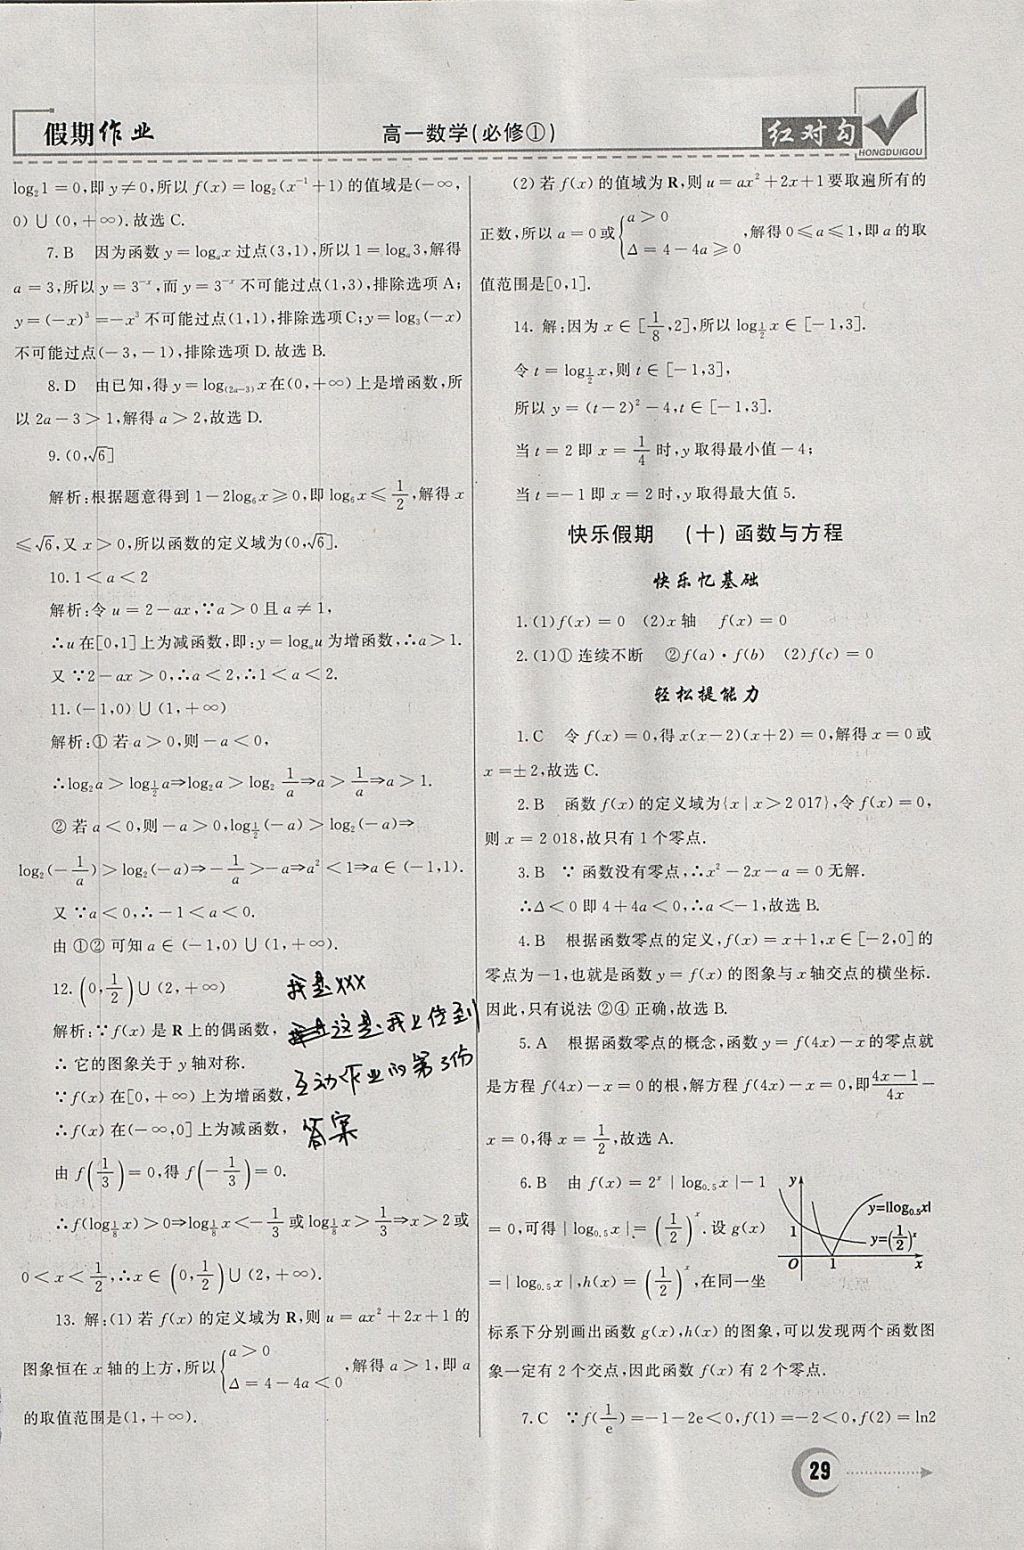 假期作业
高一数学(必修①)
红对勾
HONGDUIGOU
log₂1=0,即 y≠0,所以 f(x)=log₂(x⁻¹+1)的值域是(-∞,
0)∪(0,+∞).故选 C.
7.B 因为函数 y=logₐx 过点(3,1),所以 1=logₐ3,解得
a=3,所以 y=3⁻ˣ,而 y=3⁻ˣ 不可能过点(1,3),排除选项 A;
y=(-x)³=-x³ 不可能过点(1,1),排除选项 C;y=log₃(-x)
不可能过点(-3,-1),排除选项 D.故选 B.
8.D 由已知,得 y=log₍₂ₐ₋₃₎x 在(0,+∞)上是增函数,所
以 2a-3>1,解得 a>2,故选 D.
9.(0,√6]
解析:根据题意得到 1-2log₆x≥0,即 log₆x≤1/2,解得 x
≤√6,又 x>0,所以函数的定义域为(0,√6].
10.1<a<2
解析:令 u=2-ax,∵a>0 且 a≠1,
∴u 在[0,1]上为减函数,即:y=logₐu 为增函数,∴a>1.
又∵2-ax>0,∴a<2,∴1<a<2.
11.(-1,0)∪(1,+∞)
解析:① 若 a>0,则-a<0,
∴log₂a>log_{1/2}a⇒log₂a>log₂ 1/a⇒a>1/a⇒a>1.
② 若 a<0,则-a>0,log_{1/2}(-a)>log₂(-a)⇒
log₂(-1/a)>log₂(-a)⇒-1/a>-a⇒a²<1⇒a∈(-1,1).
又∵a<0,∴-1<a<0.
由 ①② 可知 a∈(-1,0)∪(1,+∞).
12.(0,1/2)∪(2,+∞)
解析:∵f(x)是 R 上的偶函数,
∴ 它的图象关于 y 轴对称.
∵f(x)在[0,+∞)上为增函数,
∴f(x)在(-∞,0]上为减函数,
由 f(1/3)=0,得 f(-1/3)=0.
∴f(log_{1/8}x)>0⇒log_{1/8}x<-1/3 或 log_{1/8}x>1/3⇒x>2 或
0<x<1/2,∴x∈(0,1/2)∪(2,+∞).
13. 解:(1) 若 f(x) 的定义域为 R,则 u=ax²+2x+1 的
图象恒在 x 轴的上方,所以{a>0 Δ=4-4a<0,解得 a>1,即 a
的取值范围是(1,+∞).
我是xxx
这是我上传到
互动作业的第3份
答案
(2) 若 f(x) 的值域为 R,则 u=ax²+2x+1 要取遍所有的
正数,所以 a=0 或{a>0 Δ=4-4a≥0,解得 0≤a≤1,即 a 的取
值范围是[0,1].
14. 解:因为 x∈[1/8,2],所以 log_{1/2}x∈[-1,3].
令 t=log_{1/2}x,则 t∈[-1,3],
所以 y=(t-2)²-4,t∈[-1,3].
当 t=2 即 x=1/4 时,y 取得最小值-4;
当 t=-1 即 x=2 时,y 取得最大值 5.
快乐假期 (十)函数与方程
快乐忆基础
1.(1)f(x)=0 (2)x 轴 f(x)=0
2.(1)① 连续不断 ②f(a)·f(b) (2)f(c)=0
轻松提能力
1.C 令 f(x)=0,得 x(x-2)(x+2)=0,解得 x=0 或
x=±2,故选 C.
2.B 函数 f(x)的定义域为{x|x>2 017},令 f(x)=0,
则 x=2 018,故只有 1 个零点.
3.B ∵ 函数没有零点,∴x²-2x-a=0 无解.
∴Δ<0 即 4+4a<0,∴a<-1,故选 B.
4.B 根据函数零点的定义,f(x)=x+1,x∈[-2,0]的
零点为-1,也就是函数 y=f(x)的图象与 x 轴交点的横坐标.
因此,只有说法 ②④ 正确,故选 B.
5.A 根据函数零点的概念,函数 y=f(4x)-x 的零点就
是方程 f(4x)-x=0 的根,解方程 f(4x)-x=0,即(4x-1)/4x-
x=0,得 x=1/2,故选 A.
6.B 由 f(x)=2ˣ|log₀.₅x|-1
=0,可得|log₀.₅x|=(1/2)ˣ.设 g(x)
=|log₀.₅x|,h(x)=(1/2)ˣ,在同一坐
标系下分别画出函数 g(x),h(x)的图象,可以发现两个函数图
象一定有 2 个交点,因此函数 f(x)有 2 个零点.
y
y=|log₀.₅x|
1
y=(1/2)ˣ
O 1 x
7.C ∵f(1/e)=-1-2e<0,f(1)=-2<0,f(2)=ln2
29